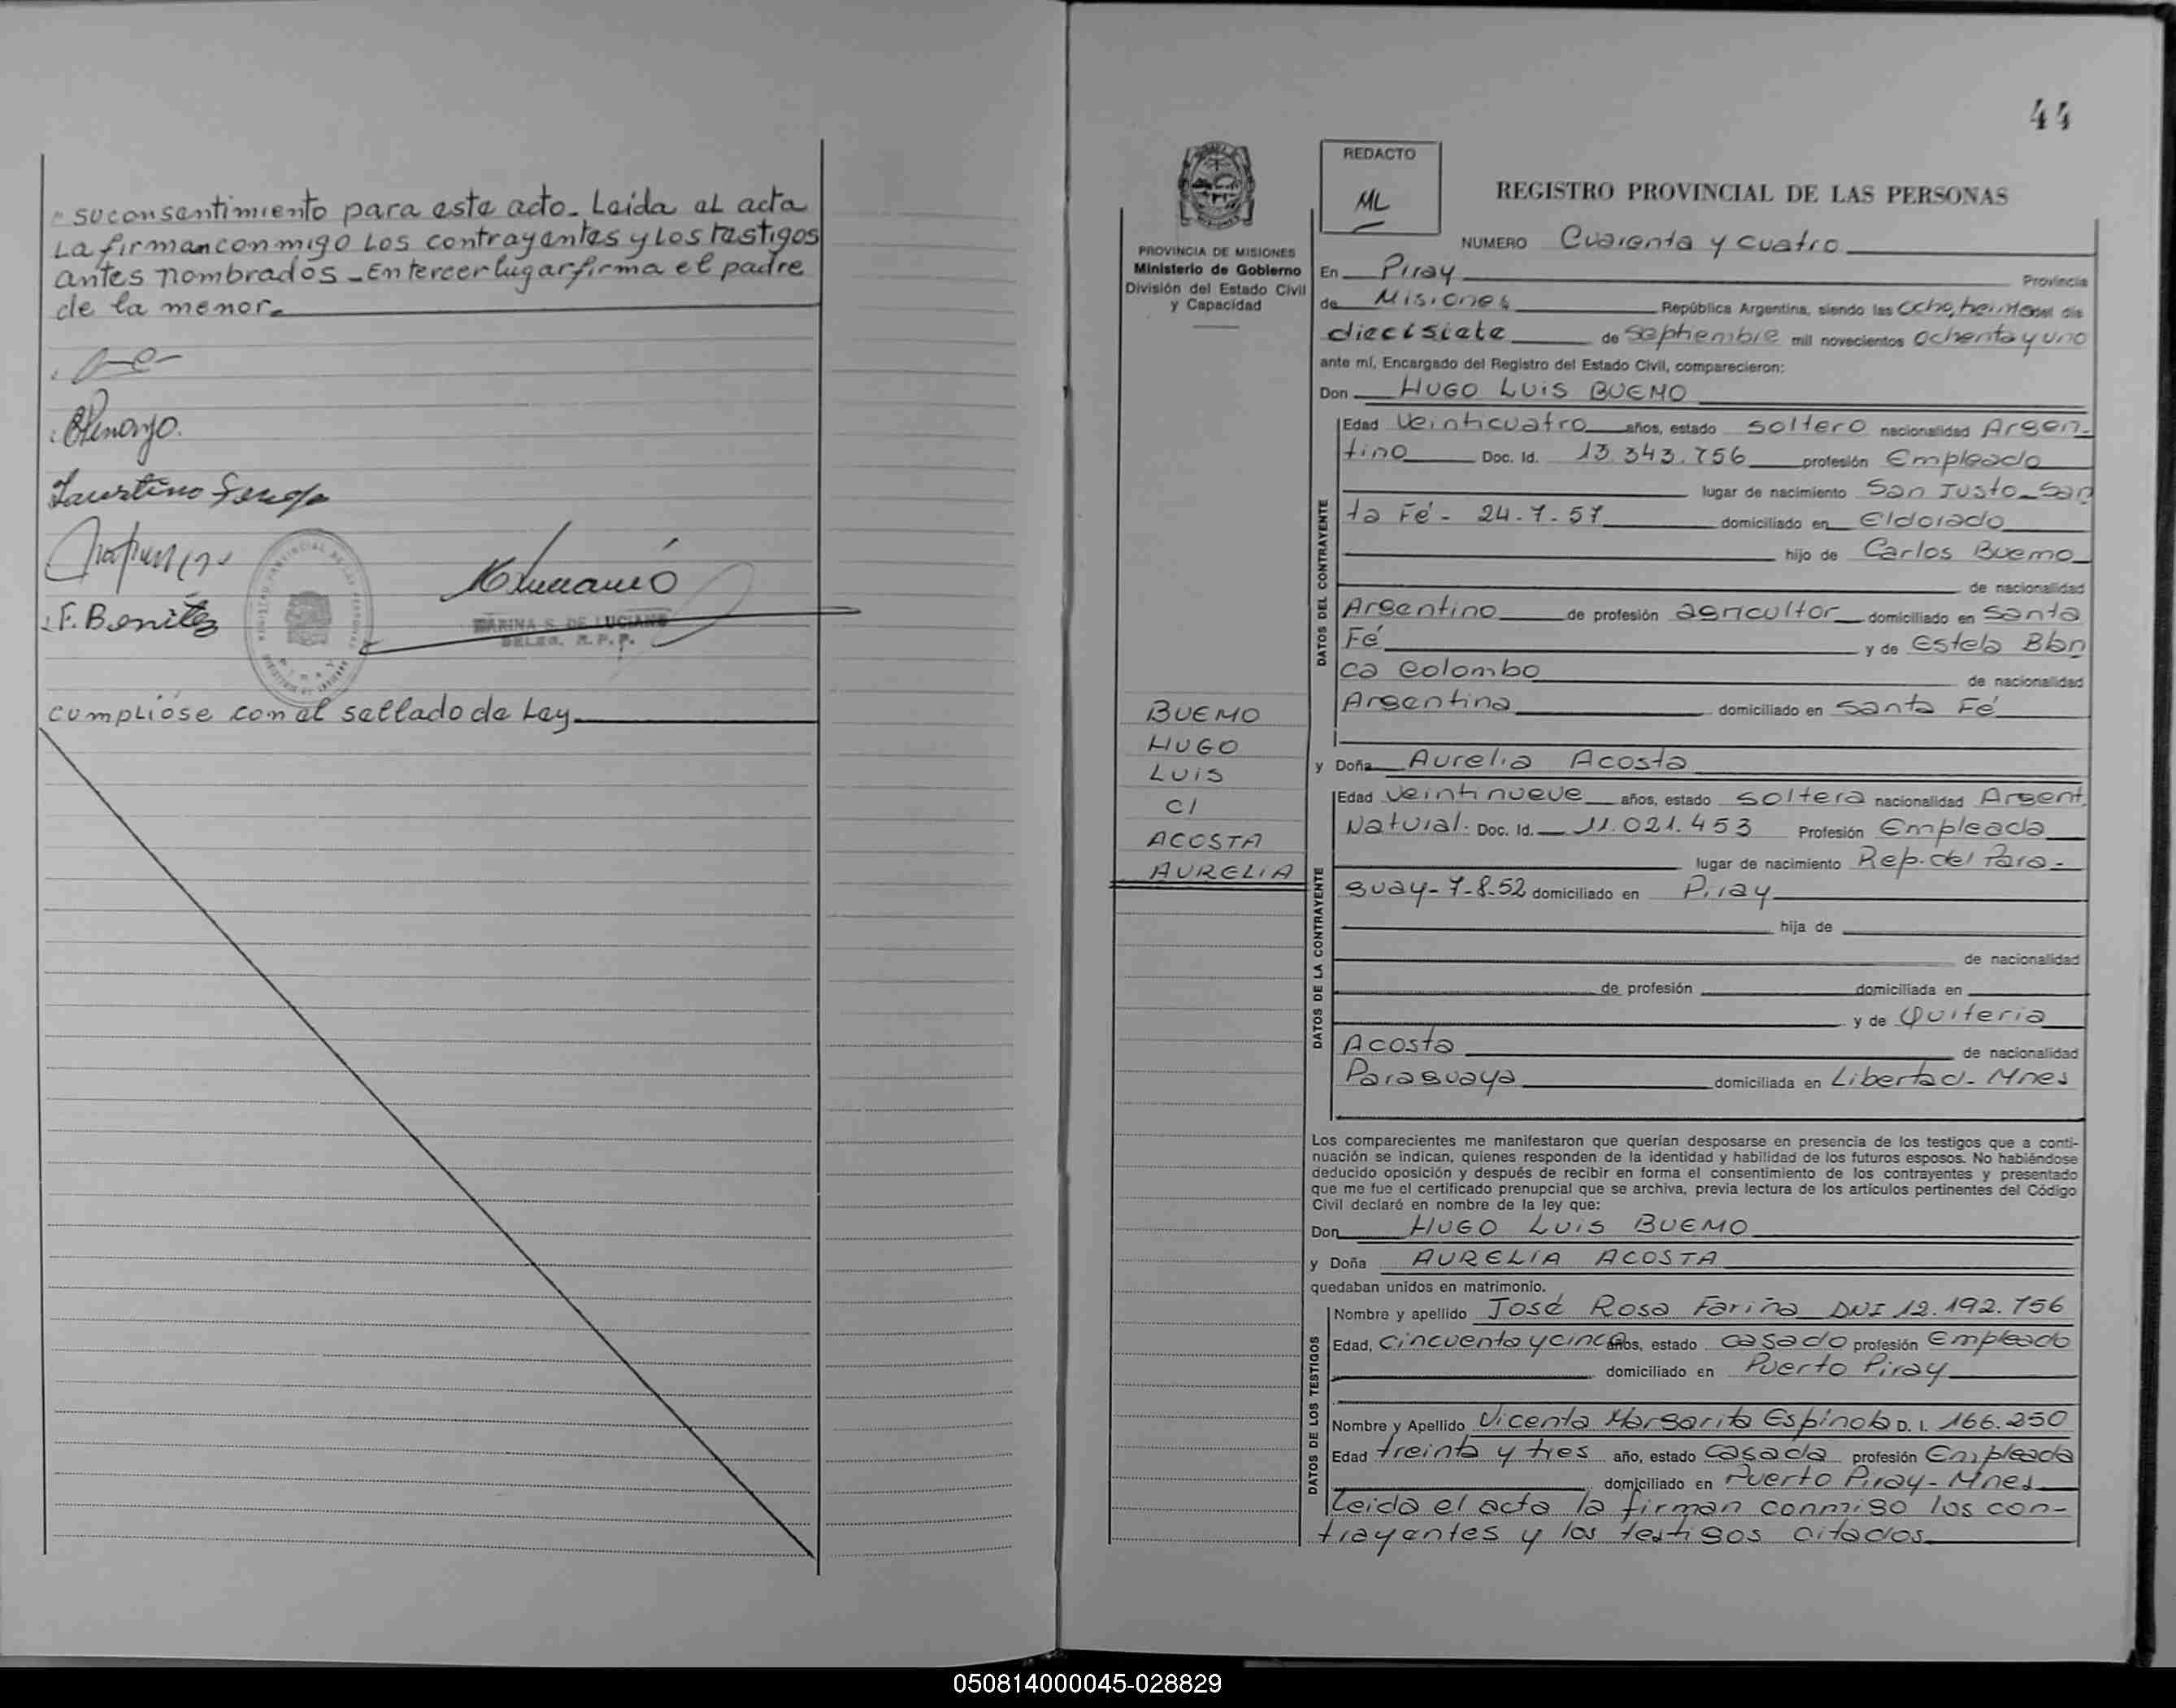 su consentimiento para este acto_ Leída el acta
La firman conmigo Los contrayentes y Los testigos
antes nombrados_ En tercer lugar firma el padre
de la menor_
Faustino
F. Benítez
MARINA S. DE LUCIANO
DELEG. R.P.P.
cumplióse con el sellado de Ley
44
REDACTO
ML
REGISTRO PROVINCIAL DE LAS PERSONAS
PROVINCIA DE MISIONES
Ministerio de Gobierno
División del Estado Civil
y Capacidad
BUEMO
HUGO
LUIS
C/
ACOSTA
AURELIA
NUMERO Cuarenta y cuatro
En Piray Provincia
de Misiones República Argentina, siendo las Ocho, treinta del día
diecisiete de Septiembre mil novecientos Ochenta y uno
ante mí, Encargado del Registro del Estado Civil, comparecieron:
Don HUGO LUIS BUEMO
DATOS DEL CONTRAYENTE
Edad Veinticuatro años, estado soltero nacionalidad Argen-
tino Doc. Id. 13.343.756 profesión Empleado
lugar de nacimiento San Justo_San
ta Fé - 24-7-57 domiciliado en Eldorado
hijo de Carlos Buemo
de nacionalidad
Argentino de profesión agricultor domiciliado en Santa
Fé y de Estela Blan
ca Colombo de nacionalidad
Argentina domiciliado en Santa Fé
y Doña Aurelia Acosta
DATOS DE LA CONTRAYENTE
Edad Veintinueve años, estado soltera nacionalidad Argent.
Natural. Doc. Id. 11.021.453 Profesión Empleada
lugar de nacimiento Rep. del Para-
guay-7-8-52 domiciliado en Piray
hija de
de nacionalidad
de profesión domiciliada en
y de Quiteria
Acosta de nacionalidad
Paraguaya domiciliada en Libertad-Mnes
Los comparecientes me manifestaron que querían desposarse en presencia de los testigos que a conti-
nuación se indican, quienes responden de la identidad y habilidad de los futuros esposos. No habiéndose
deducido oposición y después de recibir en forma el consentimiento de los contrayentes y presentado
que me fue el certificado prenupcial que se archiva, previa lectura de los artículos pertinentes del Código
Civil declaré en nombre de la ley que:
Don HUGO LUIS BUEMO
y Doña AURELIA ACOSTA
quedaban unidos en matrimonio.
DATOS DE LOS TESTIGOS
Nombre y apellido José Rosa Fariña DNI 12.192.756
Edad, cincuenta y cinco años, estado casado profesión Empleado
domiciliado en Puerto Piray
Nombre y Apellido Vicenta Margarita Espinola D. I. 166.250
Edad treinta y tres año, estado casada profesión Empleada
domiciliado en Puerto Piray-Mnes
Leida el acta la firman conmigo los con-
trayentes y los testigos citados
050814000045-028829